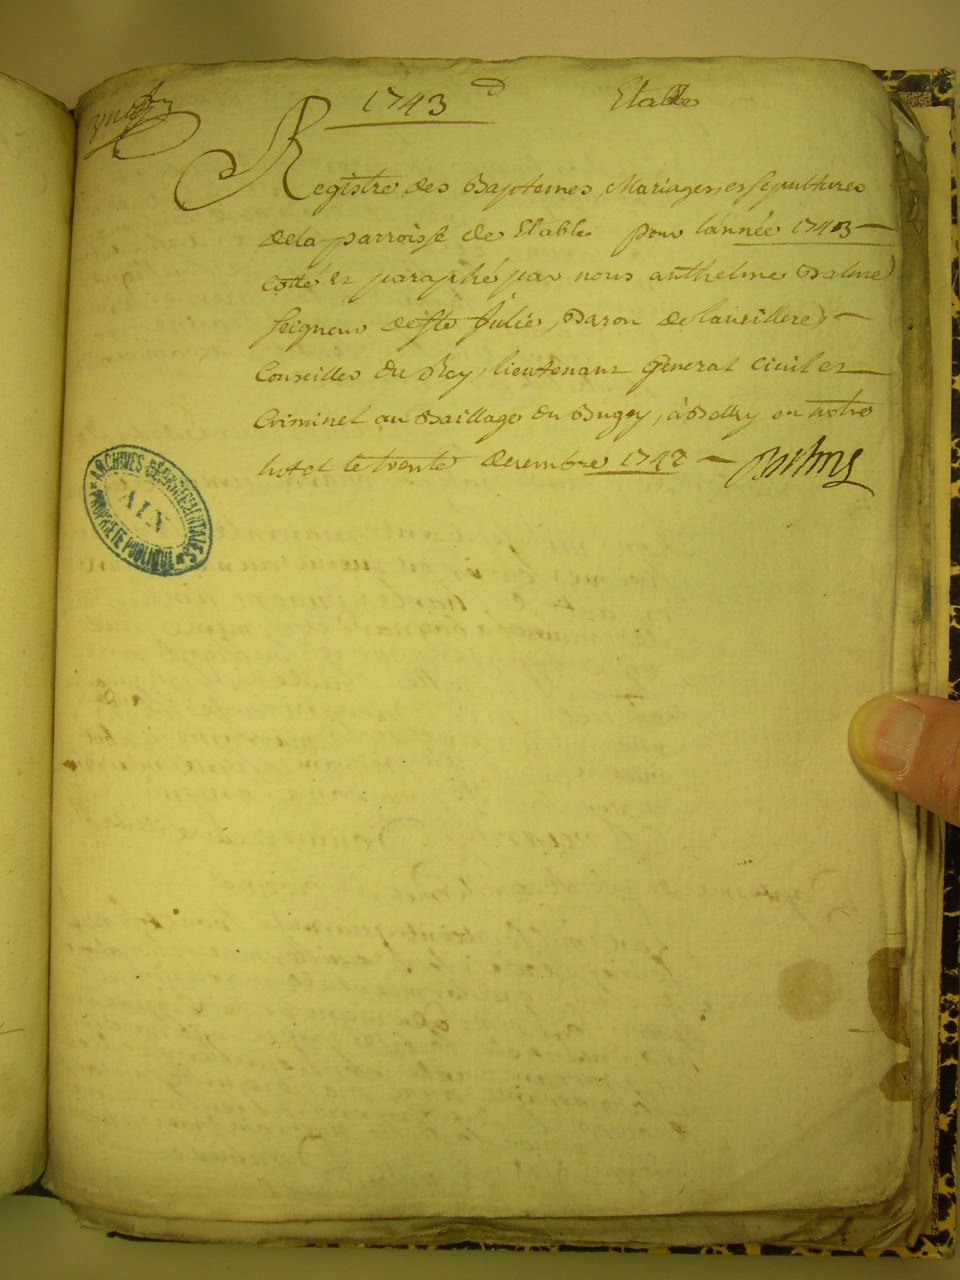 1743
Etable
Registre des Baptemes, Mariages, et sepultures
de la parroisse de Etable pour l'année 1743
Cotté et paraphé par nous anthelme Balme
seigneur de Ste Julie, Baron de
Conseiller du Roy, lieutenant General Civil et
Criminel au Baillage du Bugey, à Belley en notre
hotel le trente decembre 1742
ARCHIVES DÉPARTEMENTALES
AIN
PROPRIÉTÉ PUBLIQUE